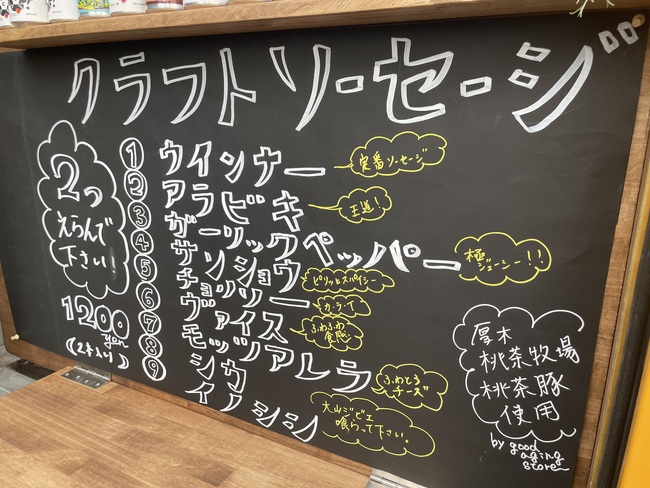 クラフトソーセージ
2つ
えらんで
下さい!
1200
yen
(2本入り)
① ウインナー
定番ソーセージ
② アラビキ
王道!
③ ガーリックペッパー
極ジューシー!!
④ サンショウ
ピリッとスパイシー
⑤ チョリソー
⑥ ヴァイス
ふわふわ
食感
⑦ モッツアレラ
ふわとろ
チーズ
⑧ シカ
⑨ イノシシ
大山ジビエ
喰らって下さい。
厚木
桃茶牧場
桃茶豚
使用
by good
aging
store